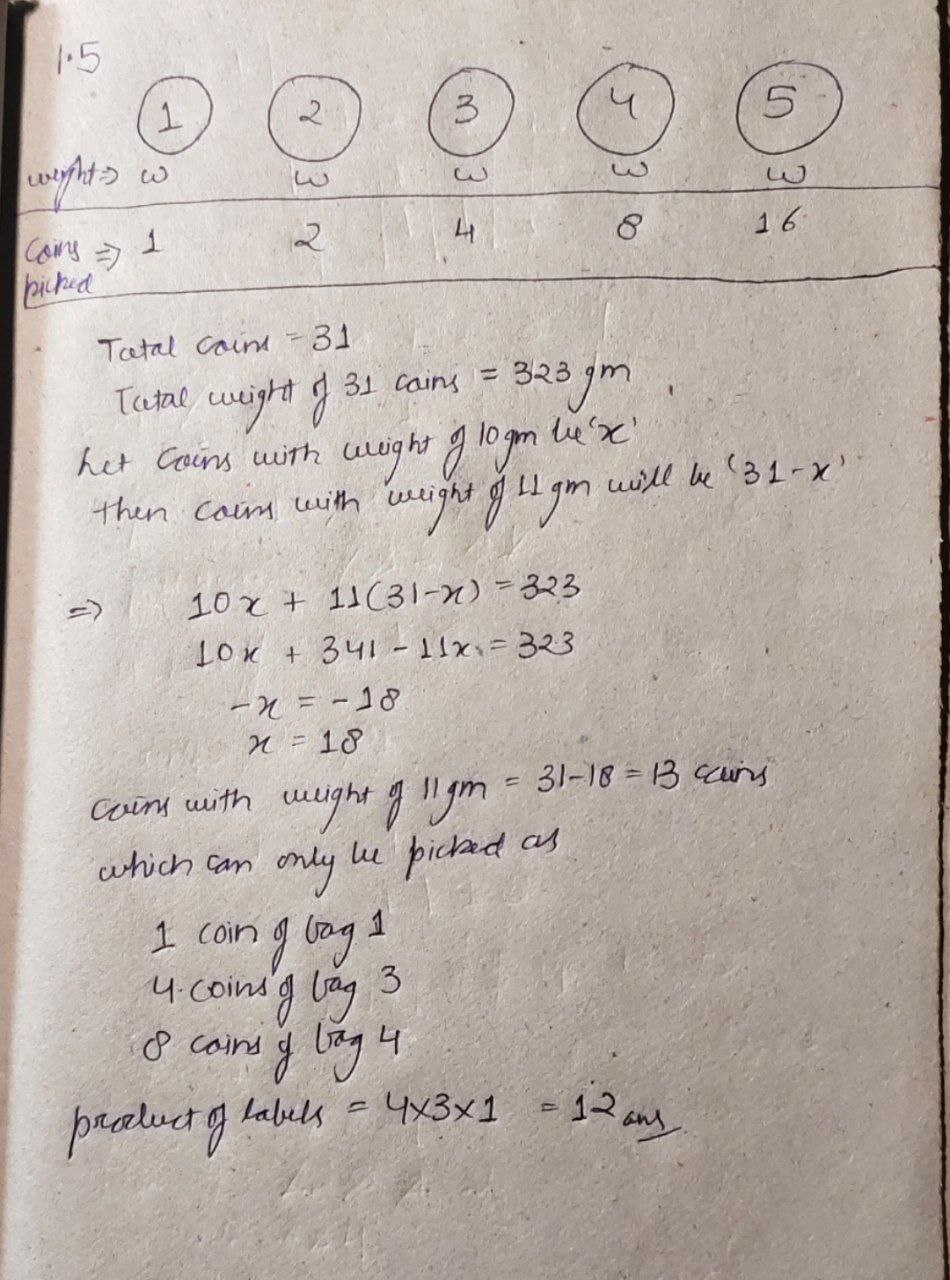 1.5
1 2 3 4 5
weight ⇒ w w w w w
Coins ⇒ 1 2 4 8 16
picked
Total coins = 31
Total weight of 31 coins = 323 gm
Let coins with weight of 10 gm be 'x'
then coins with weight of 11 gm will be '31-x'
⇒ 10x + 11(31-x) = 323
10x + 341 - 11x = 323
-x = -18
x = 18
coins with weight of 11 gm = 31-18 = 13 coins
which can only be picked as
1 coin of bag 1
4 coins of bag 3
8 coins of bag 4
product of labels = 4x3x1 = 12 ans